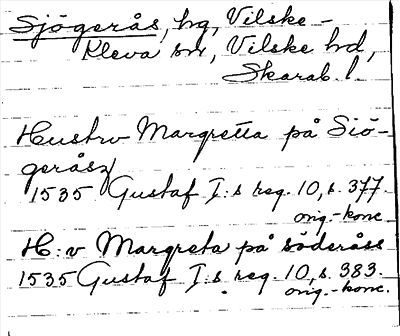 Sjögerås, hg, Vilske-
Kleva sn, Vilske hd,
Skarab. l.
Hustrv Margretta på Siö-
geråsz
1535 Gustaf I:s reg. 10, s. 377.
orig.-konc.
H:v Margreta på söderåss
1535 Gustaf I:s reg. 10, s. 383.
orig.-konc.